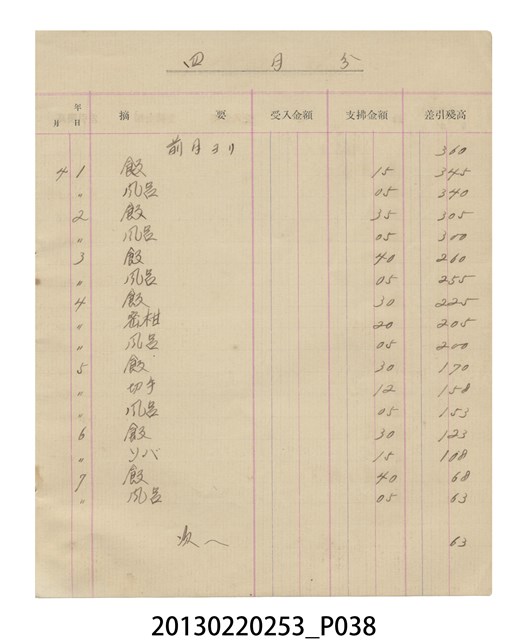 四月分
年 月 日 摘要 受入金額 支拂金額 差引殘高
前月ヨリ 360
4 1 飯 15 345
〃 風呂 05 340
2 飯 35 305
〃 風呂 05 300
3 飯 40 260
〃 風呂 05 255
4 飯 30 225
〃 密柑 20 205
〃 風呂 05 200
5 飯 30 170
〃 切手 12 158
〃 風呂 05 153
6 飯 30 123
〃 ソバ 15 108
7 飯 40 68
〃 風呂 05 63
次へ 63
20130220253_P038